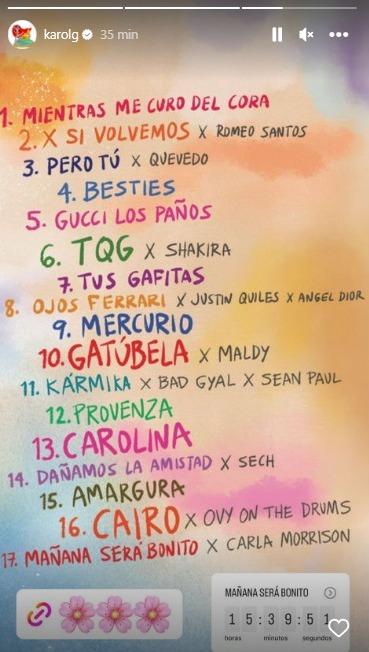 karolg 35 min
1. MIENTRAS ME CURO DEL CORA
2. X SI VOLVEMOS X ROMEO SANTOS
3. PERO TÚ X QUEVEDO
4. BESTIES
5. GUCCI LOS PAÑOS
6. TQG X SHAKIRA
7. TUS GAFITAS
8. OJOS FERRARI X JUSTIN QUILES X ANGEL DIOR
9. MERCURIO
10. GATÚBELA X MALDY
11. KÁRMIKA X BAD GYAL X SEAN PAUL
12. PROVENZA
13. CAROLINA
14. DAÑAMOS LA AMISTAD X SECH
15. AMARGURA
16. CAIRO X OVY ON THE DRUMS
17. MAÑANA SERÁ BONITO X CARLA MORRISON
MAÑANA SERÁ BONITO
15:39:51
horas minutos segundos